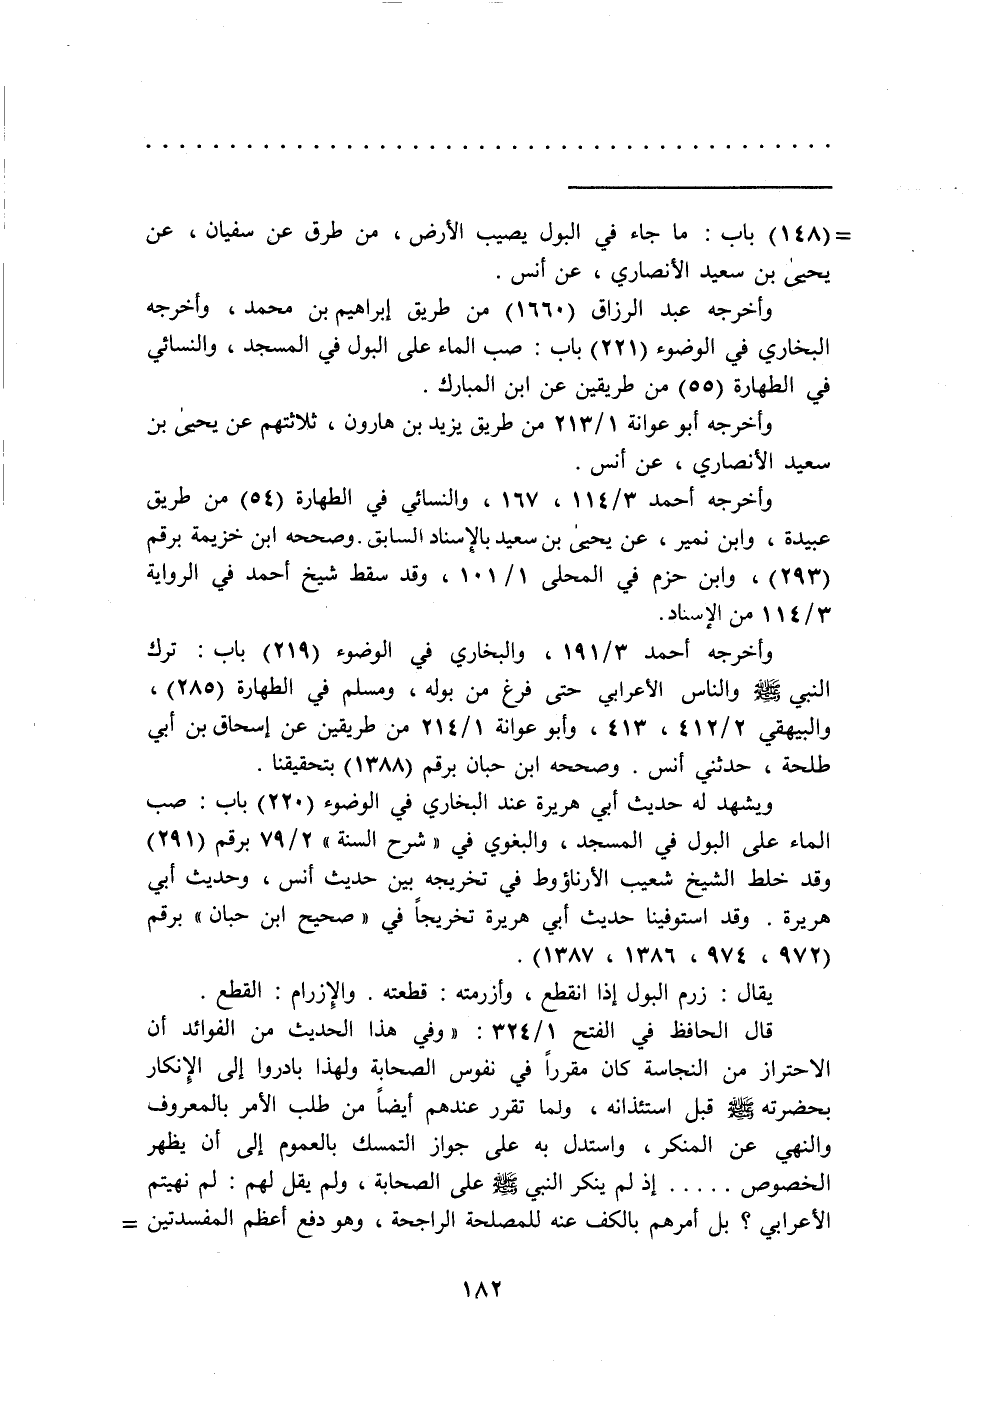 = (١٤٨) باب : ما جاء في البول يصيب الأرض ، من طرق عن سفيان ، عن
يحيىٰ بن سعيد الأنصاري ، عن أنس .
وأخرجه عبد الرزاق (١٦٦٠) من طريق إبراهيم بن محمد ، وأخرجه
البخاري في الوضوء (٢٢١) باب : صب الماء على البول في المسجد ، والنسائي
في الطهارة (٥٥) من طريقين عن ابن المبارك .
وأخرجه أبو عوانة ٢١٣/١ من طريق يزيد بن هارون ، ثلاثتهم عن يحيىٰ بن
سعيد الأنصاري ، عن أنس .
وأخرجه أحمد ١١٤/٣ ، ١٦٧ ، والنسائي في الطهارة (٥٤) من طريق
عبيدة ، وابن نمير ، عن يحيىٰ بن سعيد بالإسناد السابق . وصححه ابن خزيمة برقم
(٢٩٣) ، وابن حزم في المحلى ١٠١/١ ، وقد سقط شيخ أحمد في الرواية
١١٤/٣ من الإسناد.
وأخرجه أحمد ١٩١/٣ ، والبخاري في الوضوء (٢١٩) باب : ترك
النبي ﷺ والناس الأعرابي حتى فرغ من بوله ، ومسلم في الطهارة (٢٨٥) ،
والبيهقي ٤١٢/٢ ، ٤١٣ ، وأبو عوانة ٢١٤/١ من طريقين عن إسحاق بن أبي
طلحة ، حدثني أنس . وصححه ابن حبان برقم (١٣٨٨) بتحقيقنا .
ويشهد له حديث أبي هريرة عند البخاري في الوضوء (٢٢٠) باب : صب
الماء على البول في المسجد ، والبغوي في « شرح السنة » ٧٩/٢ برقم (٢٩١)
وقد خلط الشيخ شعيب الأرناؤوط في تخريجه بين حديث أنس ، وحديث أبي
هريرة . وقد استوفينا حديث أبي هريرة تخريجاً في « صحيح ابن حبان » برقم
(٩٧٢ ، ٩٧٤ ، ١٣٨٦ ، ١٣٨٧) .
يقال : زرم البول إذا انقطع ، وأزرمته : قطعته . والإزرام : القطع .
قال الحافظ في الفتح ٣٢٤/١ : « وفي هذا الحديث من الفوائد أن
الاحتراز من النجاسة كان مقرراً في نفوس الصحابة ولهذا بادروا إلى الإنكار
بحضرته ﷺ قبل استئذانه ، ولما تقرر عندهم أيضاً من طلب الأمر بالمعروف
والنهي عن المنكر ، واستدل به على جواز التمسك بالعموم إلى أن يظهر
الخصوص ..... إذ لم ينكر النبي ﷺ على الصحابة ، ولم يقل لهم : لم نهيتم
الأعرابي ؟ بل أمرهم بالكف عنه للمصلحة الراجحة ، وهو دفع أعظم المفسدتين =
١٨٢